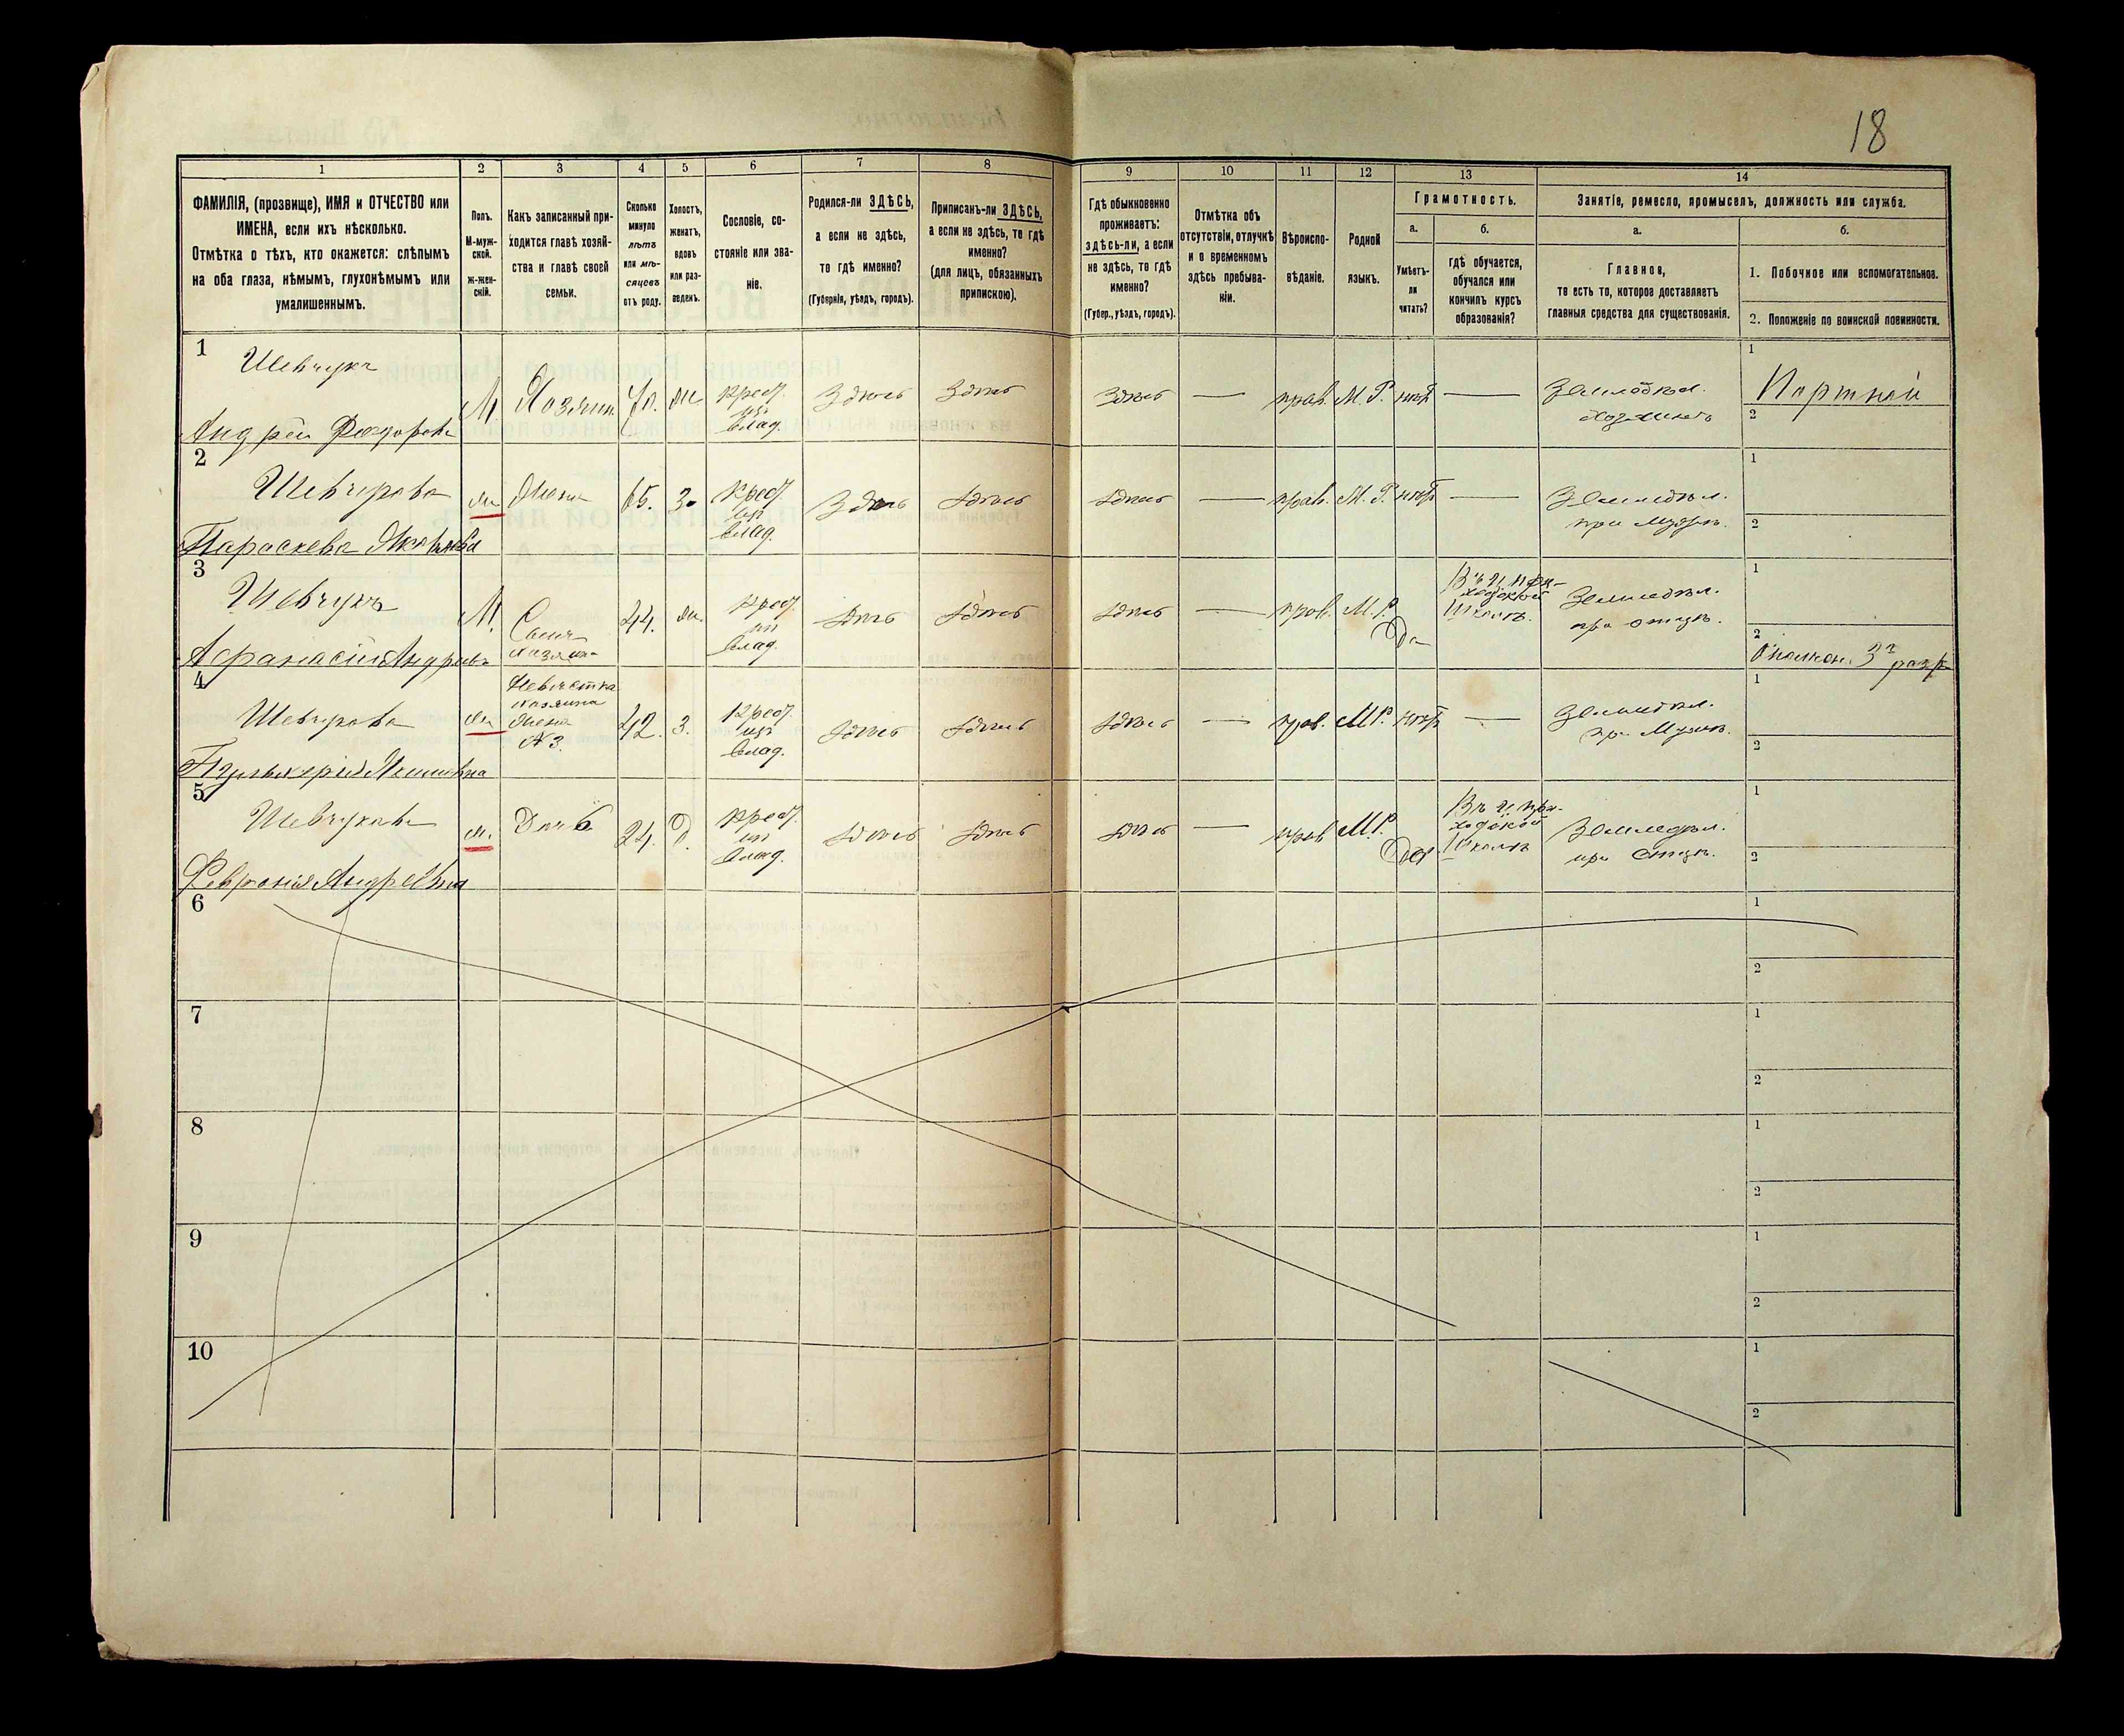 18
1
2
3
4
5
6
7
8
9
10
11
12
13
14
ФАМИЛІЯ, (прозвище), ИМЯ и ОТЧЕСТВО или
ИМЕНА, если ихъ нѣсколько.
Отмѣтка о тѣхъ, кто окажется: слѣпымъ
на оба глаза, нѣмымъ, глухонѣмымъ или
умалишеннымъ.
Полъ.
М-муж-
ской.
ж-жен-
скій.
Какъ записанный при-
ходится главѣ хозяй-
ства и главѣ своей
семьи.
Сколько
минуло
лѣтъ
или мѣ-
сяцевъ
отъ роду.
Холостъ,
женатъ,
вдовъ
или раз-
веденъ.
Сословіе, со-
стояніе или зва-
ніе.
Родился-ли ЗДѢСЬ,
а если не здѣсь,
то гдѣ именно?
(Губернія, уѣздъ, городъ).
Приписанъ-ли ЗДѢСЬ,
а если не здѣсь, то гдѣ
именно?
(для лицъ, обязанныхъ
припискою).
Гдѣ обыкновенно
проживаетъ:
здѣсь-ли, а если
не здѣсь, то гдѣ
именно?
(Губер., уѣздъ, городъ).
Отмѣтка объ
отсутствіи, отлучкѣ
и о временномъ
здѣсь пребыва-
ніи.
Вѣроиспо-
вѣданіе.
Родной
языкъ.
Грамотность.
а.
Умѣетъ-
ли
читать?
б.
гдѣ обучается,
обучался или
кончилъ курсъ
образованія?
Занятіе, ремесло, промыселъ, должность или служба.
а.
Главное,
то есть то, которое доставляетъ
главныя средства для существованія.
б.
1. Побочное или вспомогательное.
2. Положеніе по воинской повинности.
1
Шевчукъ
Андрей Федоровъ
М
Хозяинъ
70.
ж
Крест.
изъ
влад.
Здѣсь
Здѣсь
Здѣсь
—
прав.
М. Р.
нѣтъ
—
Земледѣл.
хозяинъ
1
Портной
2
2
Шевчукова
Параскева Яковлева
ж
Жена
65.
з.
Крест.
изъ
влад.
Здѣсь
Здѣсь
Здѣсь
—
прав.
М. Р.
нѣтъ
—
Земледѣл.
при мужѣ.
1
2
3
Шевчукъ
Афанасій Андреевъ
М.
Сынъ
хозяина
44.
ж.
Крест.
изъ
влад.
Здѣсь
Здѣсь
Здѣсь
—
прав.
М. Р.
Да
Въ ц. при-
ходской
школѣ.
Земледѣл.
при отцѣ.
1
2
Ополчен. 3 разр
4
Шевчукова
Пульхерія
ж
Невѣстка
хозяина
жена
№ 3.
42.
з.
Крест.
изъ
влад.
Здѣсь
Здѣсь
Здѣсь
—
прав.
М. Р.
нѣтъ
—
Земледѣл.
при мужѣ.
1
2
5
Шевчукова
Февронія Андреевна
ж.
Дочь
24.
д.
Крест.
изъ
влад.
Здѣсь
Здѣсь
Здѣсь
—
прав.
М. Р.
Да.
Въ ц. при-
ходской
школѣ
Земледѣл.
при отцѣ.
1
2
6
1
2
7
1
2
8
1
2
9
1
2
10
1
2